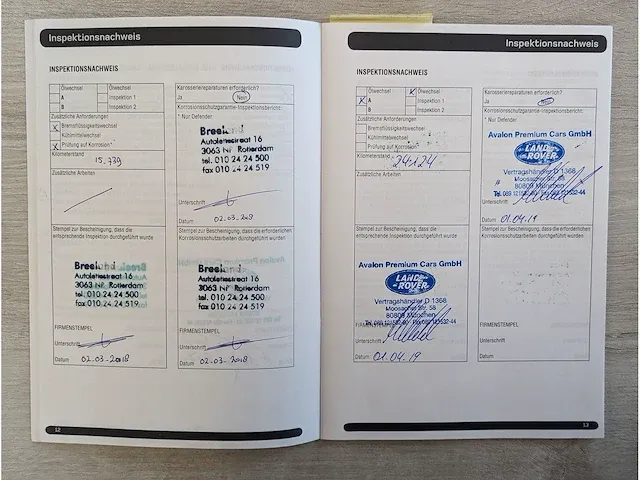 Inspektionsnachweis
INSPEKTIONSNACHWEIS
Ölwechsel
Ölwechsel
A
Inspektion 1
B
Inspektion 2
Zusätzliche Anforderungen
X Bremsflüssigkeitswechsel
Kühlmittelwechsel
X Prüfung auf Korrosion*
Kilometerstand
15.739
Zusätzliche Arbeiten
Karosseriereparaturen erforderlich?
Ja
Nein
Korrosionsschutzgarantie-Inspektionsbericht:
* Nur Defender
Breeland
Autoletiestraat 16
3063 NF Rotterdam
tel. 010 24 24 500
fax 010 24 24 519
Unterschrift
Datum 02.03.2018
Stempel zur Bescheinigung, dass die
entsprechende Inspektion durchgeführt wurde
Breeland
Autoletiestraat 16
3063 NF Rotterdam
tel. 010 24 24 500
fax 010 24 24 519
FIRMENSTEMPEL
Unterschrift
Datum 02-03-2018
Stempel zur Bescheinigung, dass die erforderlichen
Korrosionsschutzarbeiten durchgeführt wurden:
Breeland
Autoletiestraat 16
3063 NF Rotterdam
tel. 010 24 24 500
fax 010 24 24 519
FIRMENSTEMPEL
Unterschrift
Datum 02-03-2018
12
Inspektionsnachweis
INSPEKTIONSNACHWEIS
Ölwechsel
X Ölwechsel
X A
Inspektion 1
B
Inspektion 2
Zusätzliche Anforderungen
Bremsflüssigkeitswechsel
Kühlmittelwechsel
Prüfung auf Korrosion*
Kilometerstand
24124
Zusätzliche Arbeiten
Karosseriereparaturen erforderlich?
Ja
Korrosionsschutzgarantie-Inspektionsbericht:
* Nur Defender
Avalon Premium Cars GmbH
LAND ROVER
Vertragshändler D 1368
Moosacher Str. 58
80809 München
Unterschrift
Datum 01.04.19
Stempel zur Bescheinigung, dass die
entsprechende Inspektion durchgeführt wurde
Avalon Premium Cars GmbH
LAND ROVER
Vertragshändler D 1368
Moosacher Str. 58
80809 München
FIRMENSTEMPEL
Unterschrift
Datum 01.04.19
Stempel zur Bescheinigung, dass die erforderlichen
Korrosionsschutzarbeiten durchgeführt wurden:
FIRMENSTEMPEL
Unterschrift
Datum
13